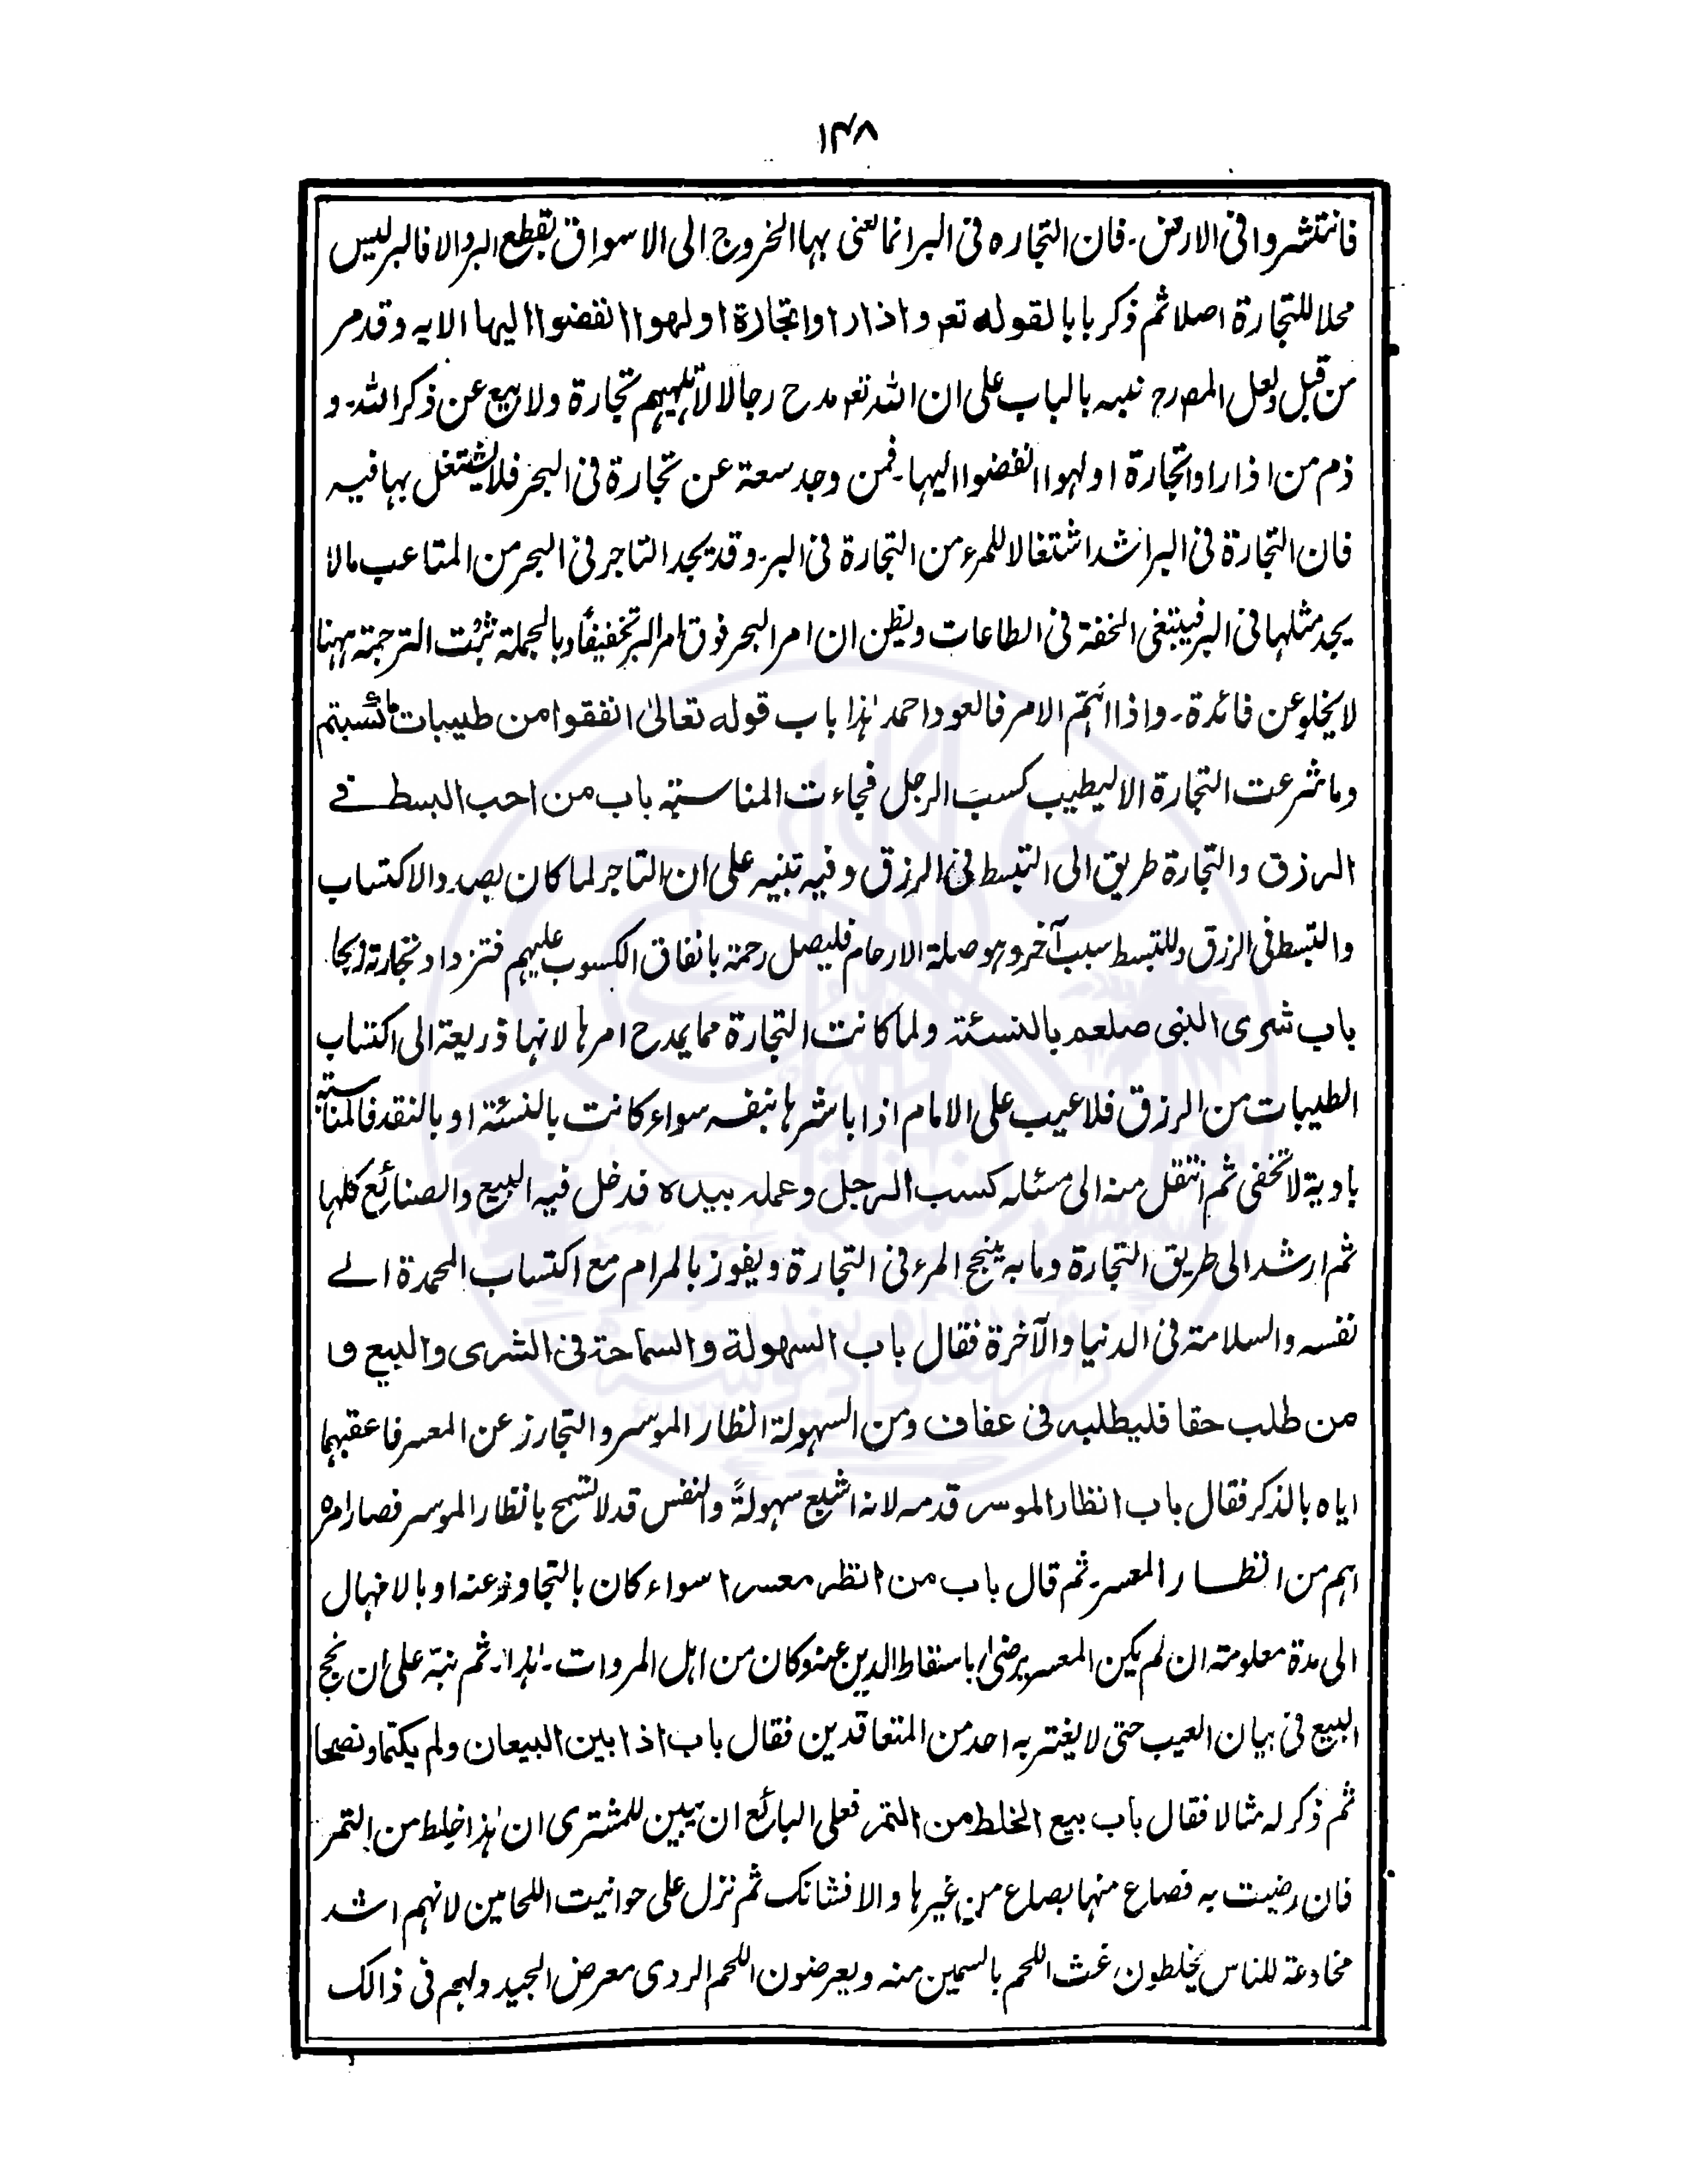 ۱۴۸
فانتشروا فى الارض۔ فان التجاره فى البر انما لعنى بها الخروج الى الاسواق بقطع البر والا فالبر ليس
محلا للتجارة اصلا ثم ذكر بابا لقوله تعـ و اذا راوا تجارة او لهوا انفضوا اليها الايه وقد مر
من قبل ولعل المصرح نبه بالباب على ان الله تعـ مدح رجالا لا تلهيهم تجارة ولا بيع عن ذكر الله۔ و
ذم من اذا راوا تجارة او لهوا انفضوا اليها۔ فمن وجد سعة عن تجارة فى البحر فلا يشتغل بها فيه
فان التجارة فى البر اشد اشتغالا للمرء من التجارة فى البر۔ وقد يجد التاجر فى البحر من المتاعب مالا
يجد مثلها فى البر فيبتغى الخفة فى الطاعات ويظن ان امر البحر فوق امر البر تخفيفاً وبالجملة ثبت الترجمة ههنا
لا يخلو عن فائدة۔ واذا اهتم الامر فالعود احمد هٰذا باب قوله تعالىٰ انفقوا من طيبات ما كسبتم
وما شرعت التجارة الا ليطيب كسب الرجل فجاءت المناسبته باب من احب البسط فے
الرزق والتجارة طريق الى التبسط فى الرزق وفيه تنبيه على ان التاجر لما كان بصدد الاكتساب
والتبسط فى الرزق وللتبسط سبب آخر وهو صلة الارحام فليصل رحمة بانفاق الكسوب عليهم فتزداد تجارته ربحا۔
باب شرى النبى صلعم بالنسئة ولما كانت التجارة مما يمدح امرها لانها ذريعة الى اكتساب
الطيبات من الرزق فلا عيب على الامام اذا باشرها بنفسه سواء كانت بالنسئة او بالنقد فالمناسبته
بادية لا تخفى ثم انتقل منه الى مسئله كسب الرجل وعمله بيده فدخل فيه البيع والصنائع كلها
ثم ارشد الى طريق التجارة وما به ينجح المرء فى التجارة ويفوز بالمرام مع اكتساب المحمدة الے
نفسه والسلامة فى الدنيا والآخرة فقال باب السهولة والسماحة فى الشرى والبيع و
من طلب حقا فليطلبه فى عفاف ومن السهولة انظار الموسر والتجارز عن المعسر فاعقبهما
اياه بالذكر فقال باب انظار الموسر قدمه لانه اشيع سهولةً والنفس قد لا تسمح بانظار الموسر فصار امره
اهم من انظار المعسر۔ ثم قال باب من انظر معسرا سواء كان بالتجاوز عنه او بالامهال
الى مدة معلومته ان لم يكن المعسر يرضى باسقاط الدين عنه وكان من اهل المروات۔ هٰذا۔ ثم نبه على ان نجح
البيع فى بيان العيب حتى لا يغتر به احد من المتعاقدين فقال باب اذا بين البيعان ولم يكتما ونصحا
ثم ذكر له مثالا فقال باب بيع الخلط من التمر فعلى البائع ان يبين للمشترى ان هٰذا خلط من التمر
فان رضيت به فصاع منها بصاع من غيرها والا فشانك ثم نزل على حوانيت اللحامين لانهم اشد
مخادعة للناس يخلطون غث اللحم بالسمين منه ويعرضون اللحم الردى معرض الجيد ولهم فى ذالك